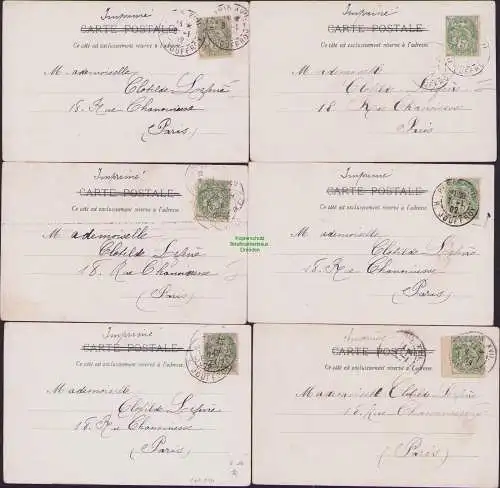 Imprimé
CARTE POSTALE
Ce côté est exclusivement réservé à l'adresse.
Mademoiselle
Clotilde
18. Rue Chanoinesse
(Paris)
Imprimé
CARTE POSTALE
Ce côté est exclusivement réservé à l'adresse.
Mademoiselle
Clotilde
18 Rue Chanoinesse
(Paris)
Imprimé
CARTE POSTALE
Ce côté est exclusivement réservé à l'adresse.
Mademoiselle
Clotilde
18. Rue Chanoinesse
(Paris)
Imprimé
CARTE POSTALE
Ce côté est exclusivement réservé à l'adresse.
Mademoiselle
Clotilde
18. Rue Chanoinesse
(Paris)
Imprimé
CARTE POSTALE
Ce côté est exclusivement réservé à l'adresse.
Mademoiselle
Clotilde
18. Rue Chanoinesse
(Paris)
Imprimé
CARTE POSTALE
Ce côté est exclusivement réservé à l'adresse.
Mademoiselle Clotilde
18. Rue Chanoinesse
(Paris)